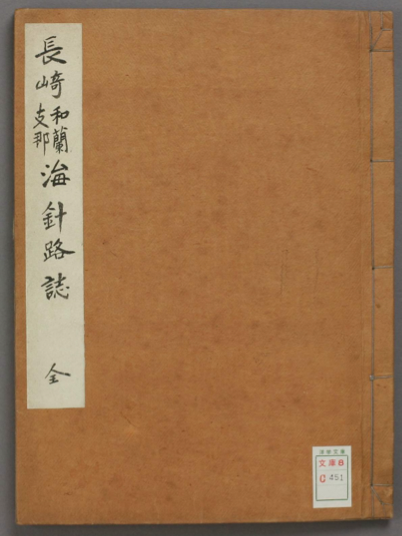 長崎和蘭支那海針路誌 全
文庫8
C 451